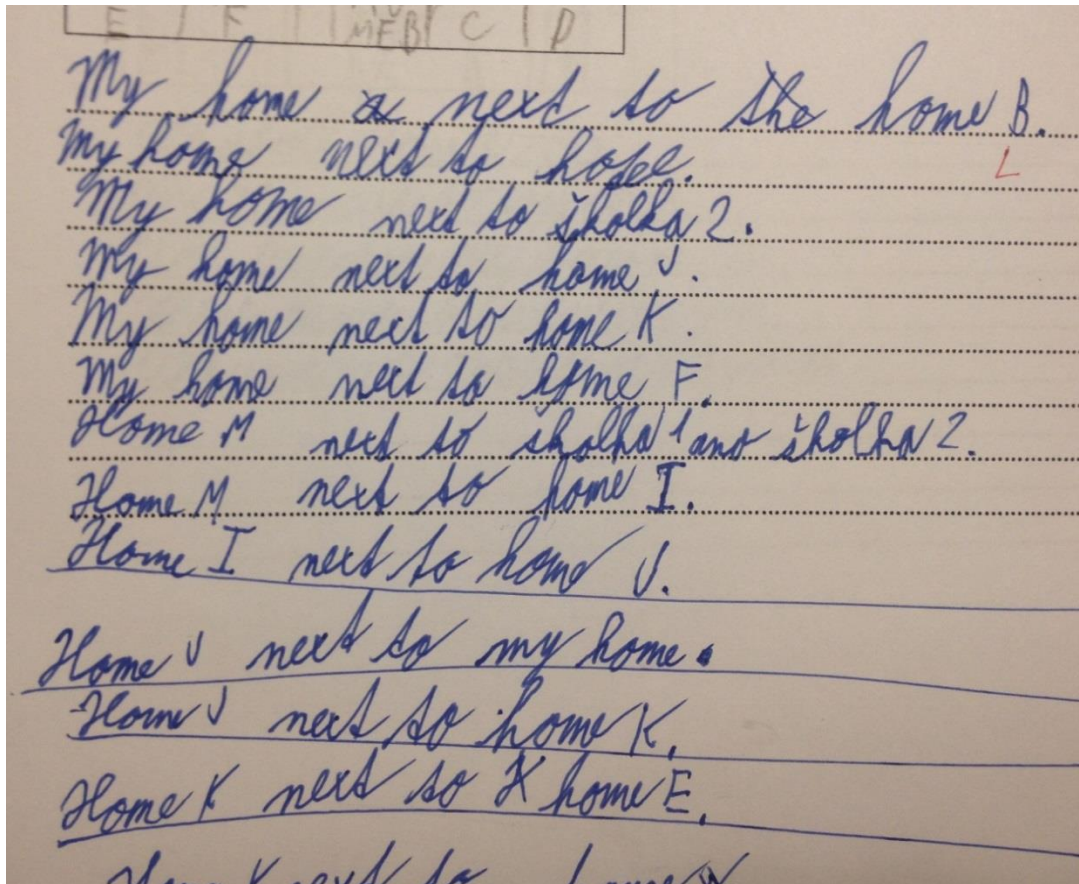 E F MEB C D
My home next to the home B.
My home next to hope.
My home next to školka 2.
My home next to home J.
My home next to home K.
My home next to home F.
Home M next to školka 1 ano školka 2.
Home M next to home I.
Home I next to home J.
Home J next to my home.
Home J next to home K.
Home K next to home E.
Home K next to home